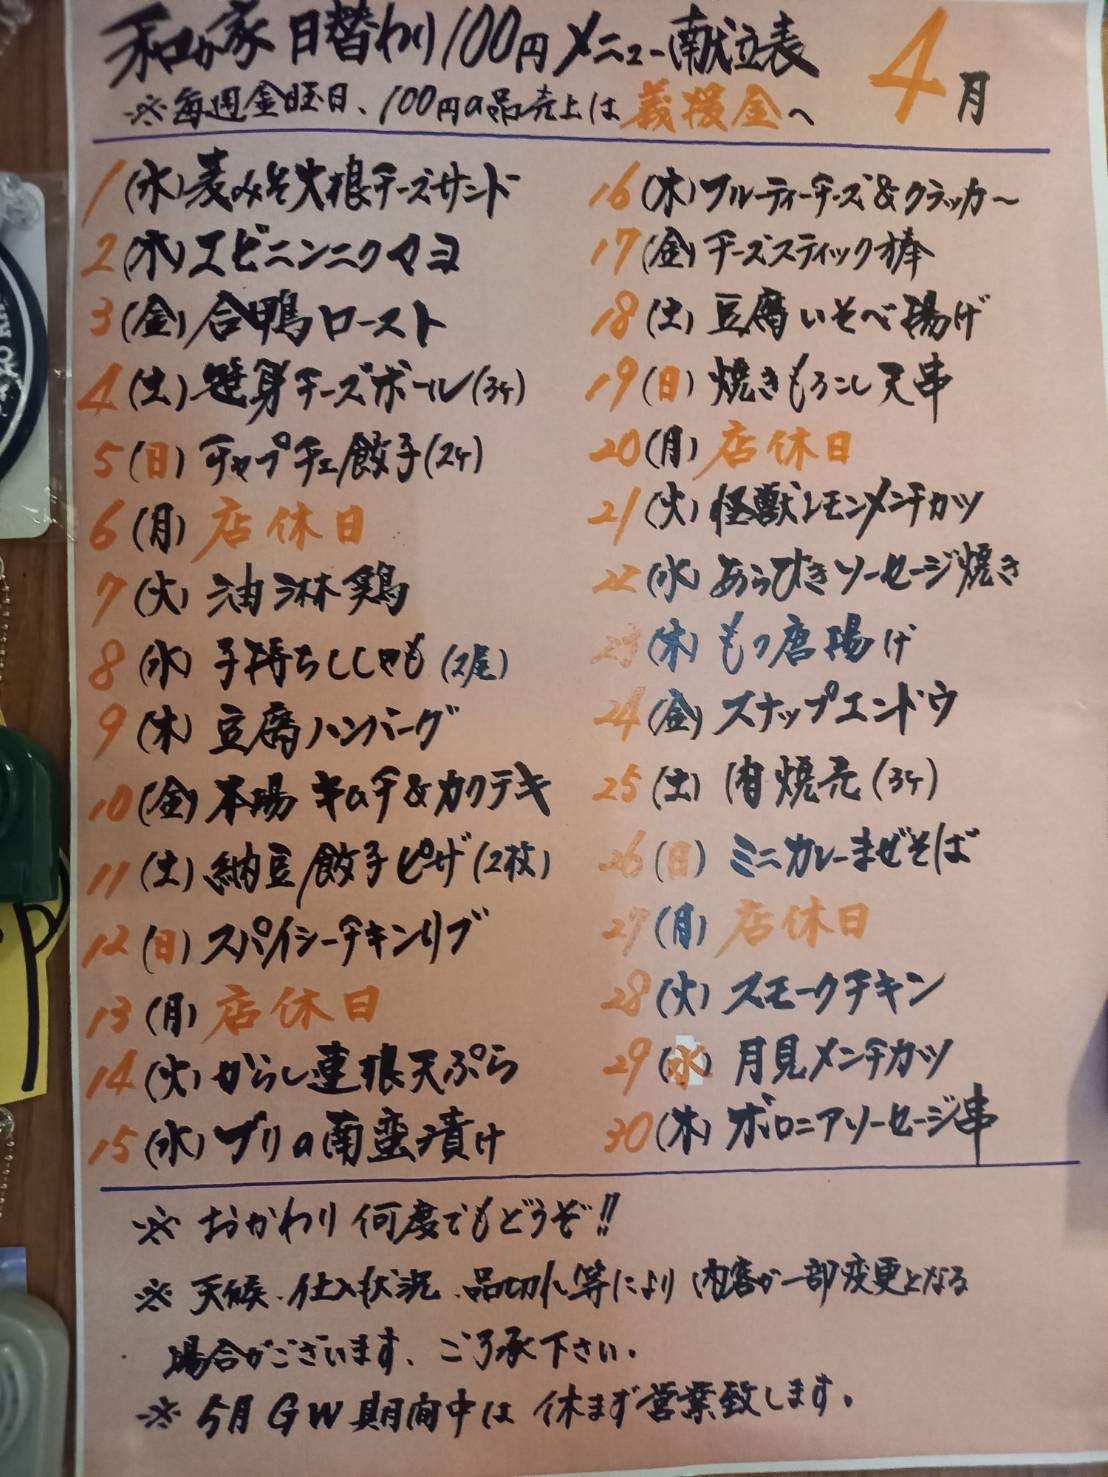 和が家 日替わり100円メニュー献立表 4月
※毎週金曜日、100円の品売上は義援金へ
1(水)麦みそ大根チーズサンド
2(木)エビニンニクマヨ
3(金)合鴨ロースト
4(土)笹身チーズボール(3ヶ)
5(日)チャプチェ餃子(2ヶ)
6(月)店休日
7(火)油淋鶏
8(水)子持ちししゃも(2尾)
9(木)豆腐ハンバーグ
10(金)本場キムチ&カクテキ
11(土)納豆餃子ピザ(2枚)
12(日)スパイシーチキンリブ
13(月)店休日
14(火)からし蓮根天ぷら
15(水)ブリの南蛮漬け
16(木)フルーティーチーズ&クラッカー
17(金)チーズスティック棒
18(土)豆腐いそべ揚げ
19(日)焼きもろこし天串
20(月)店休日
21(火)怪獣レモンメンチカツ
22(水)あらびきソーセージ焼き
23(木)もつ唐揚げ
24(金)スナップエンドウ
25(土)肉焼売(3ヶ)
26(日)ミニカレーまぜそば
27(月)店休日
28(火)スモークチキン
29(水)月見メンチカツ
30(木)ボロニアソーセージ串
※おかわり何度でもどうぞ!!
※天候、仕入状況、品切れ等により内容が一部変更となる
場合がございます、ご了承下さい。
※5月GW期間中は休まず営業致します。